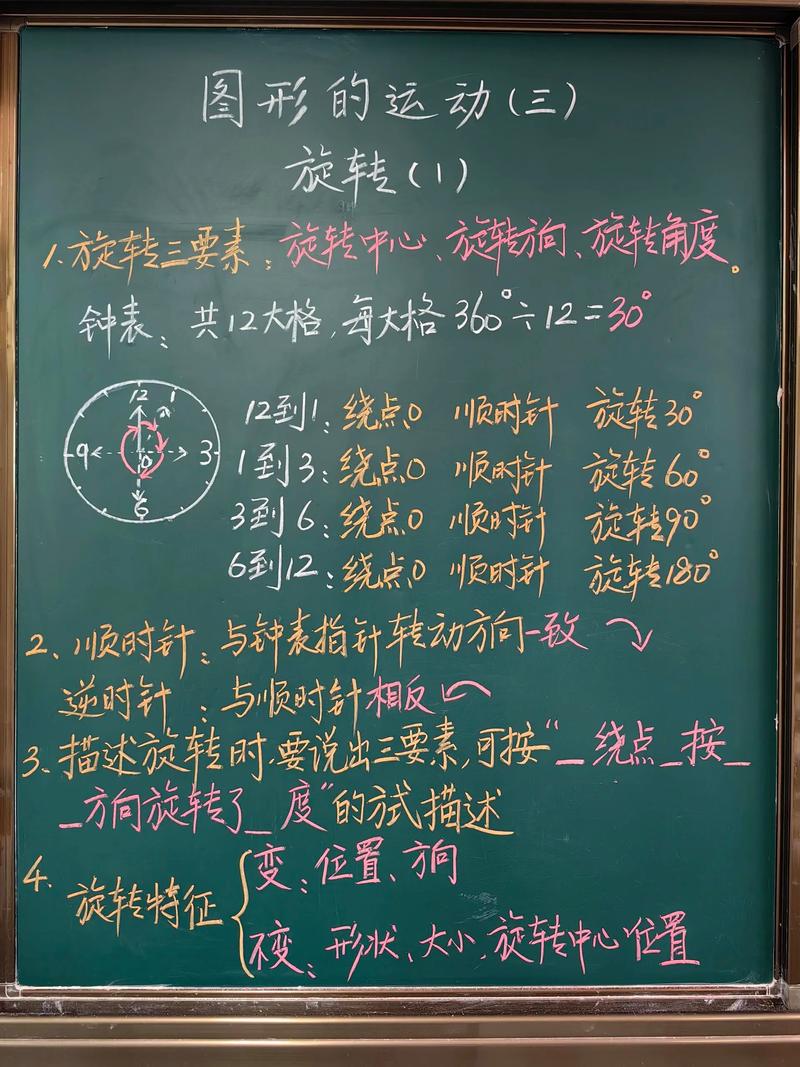 图形的运动(三)
旋转(1)
1.旋转三要素:旋转中心、旋转方向、旋转角度。
钟表:共12大格,每大格360°÷12=30°
12
1
9
0
3
6
12到1:绕点0 顺时针 旋转30°
1到3:绕点0 顺时针 旋转60°
3到6:绕点0 顺时针 旋转90°
6到12:绕点0 顺时针 旋转180°
2、顺时针:与钟表指针转动方向一致
逆时针:与顺时针相反
3、描述旋转时,要说出三要素,可按“_绕点_按_
_方向旋转了_度”的方式描述
4.旋转特征
变:位置、方向
不变:形状、大小、旋转中心位置